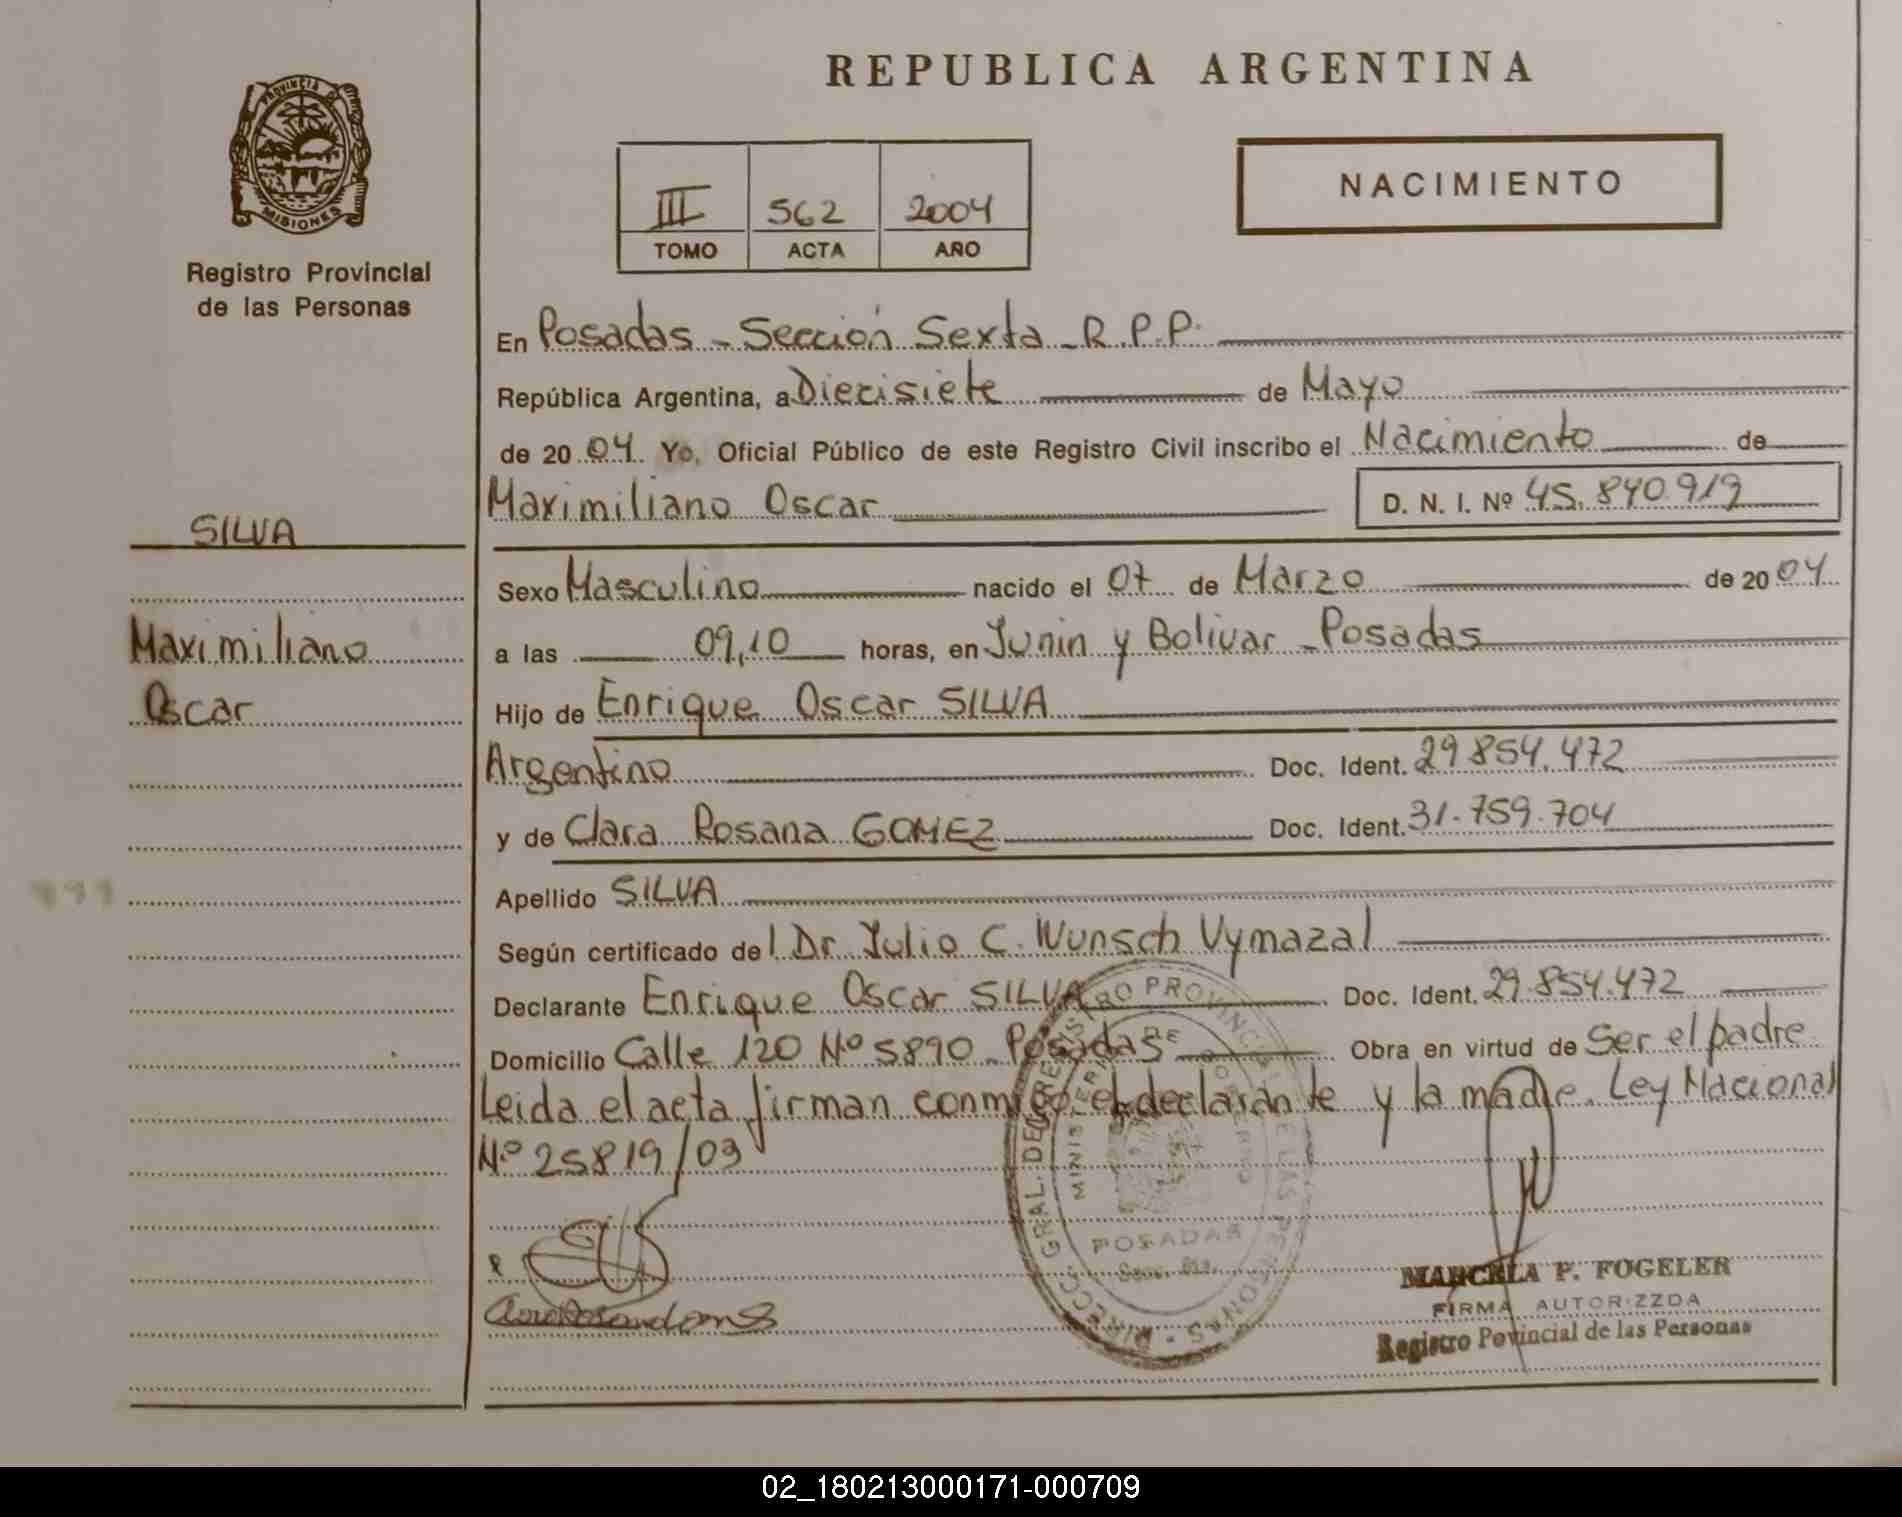 REPUBLICA ARGENTINA
PROVINCIA DE MISIONES
Registro Provincial
de las Personas
III 562 2004
TOMO ACTA AÑO
NACIMIENTO
SILVA
Maximiliano
Oscar
En Posadas - Sección Sexta - R.P.P.
República Argentina, a Diecisiete de Mayo
de 20 04 Yo, Oficial Público de este Registro Civil inscribo el Nacimiento de
Maximiliano Oscar D. N. I. Nº 45.840.919
Sexo Masculino nacido el 07 de Marzo de 20 04
a las 09,10 horas, en Junin y Bolivar - Posadas
Hijo de Enrique Oscar SILVA
Argentino Doc. Ident. 29.854.472
y de Clara Rosana GOMEZ Doc. Ident. 31.759.704
Apellido SILVA
Según certificado del Dr. Julio C. Wunsch Vymazal
Declarante Enrique Oscar SILVA Doc. Ident. 29.854.472
Domicilio Calle 120 Nº 5890 - Posadas Obra en virtud de Ser el padre.
Leida el acta firman conmigo el declarante y la madre. Ley Nacional
Nº 25819/03
DIRECC. GRAL. DEL REGISTRO PROVINCIAL DE LAS PERSONAS
MINISTERIO DE GOBIERNO
POSADAS
MARCELA P. FOGELER
FIRMA AUTORIZZDA
Registro Povincial de las Personas
02_180213000171-000709